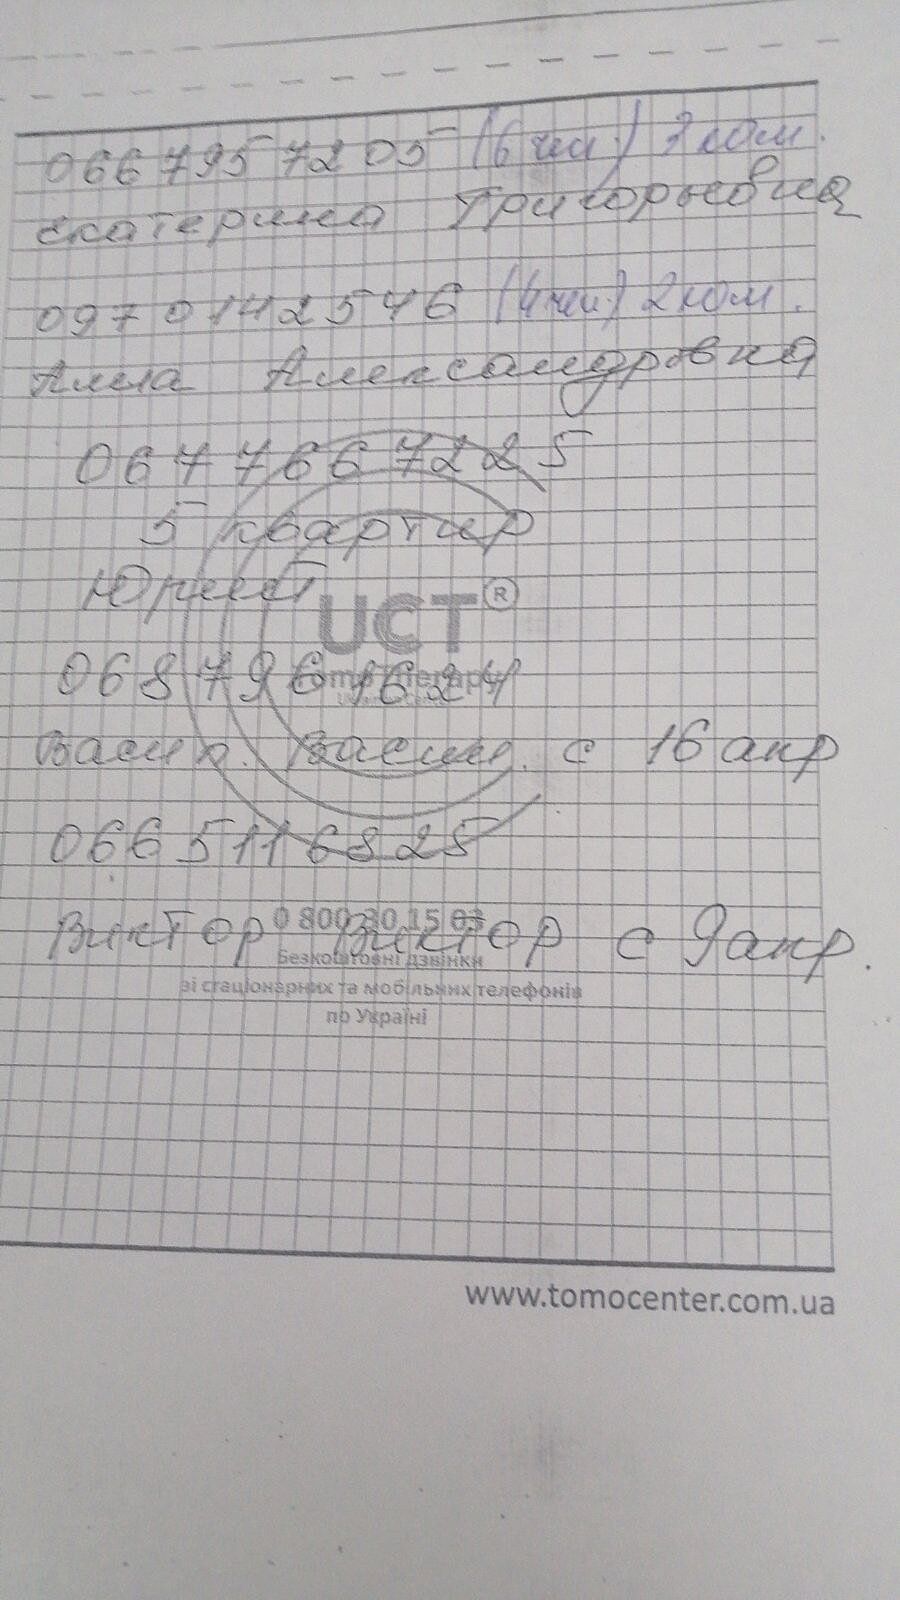 0667957205 (6 чел.) 3 ком.
Екатерина Григорьевна
0970142546 (4 чел.) 2 ком.
Алла Александровна
0677667225
5 квартир
Юрий
UCT ®
Васил. Васил. с 16 апр
0665116825
Виктор Виктор с 9 апр.
0 800 30 15 03
Безкоштовні дзвінки
зі стаціонарних та мобільних телефонів
по Україні
www.tomocenter.com.ua